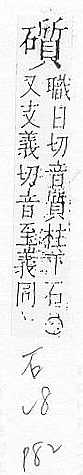 礩
職日切音質柱下石
又支義切音至義同
石
18
182